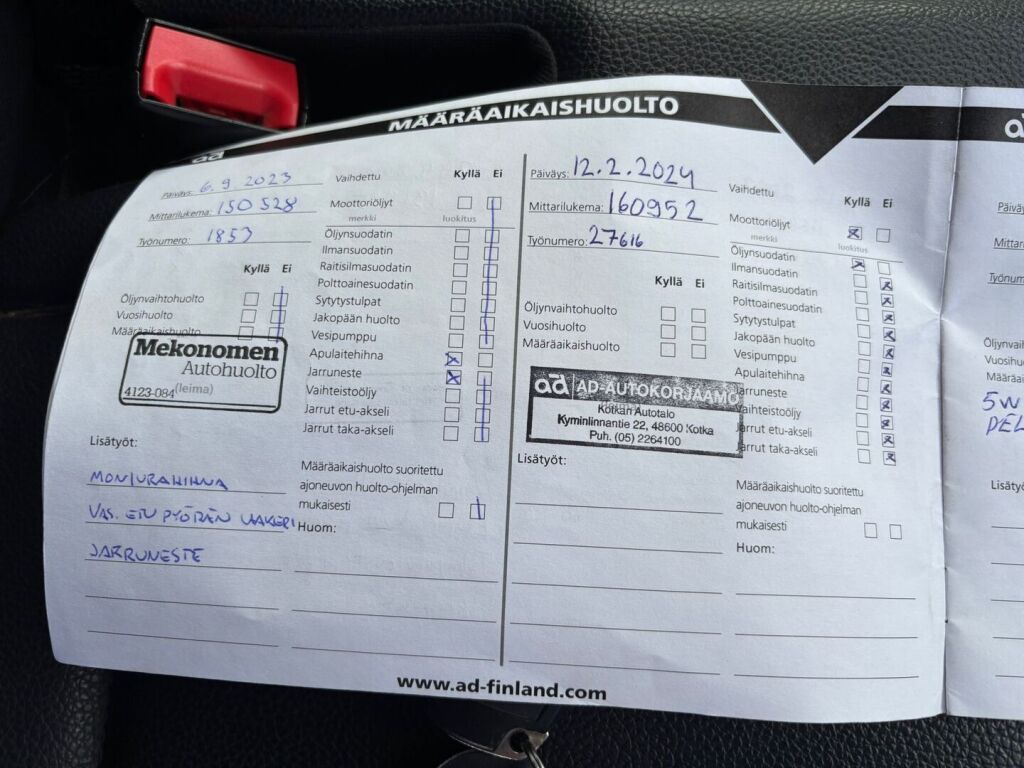 MÄÄRÄAIKAISHUOLTO
ad
Päiväys: 6.9 2023
Mittarilukema: 150 528
Työnumero: 1853
Kyllä Ei
Öljynvaihtohuolto
Vuosihuolto
Määräaikaishuolto
Mekonomen
Autohuolto
4123-084 (leima)
Lisätyöt:
MONIURAHIHNA
VAS. ETU PYÖRÄN LAAKERI
JARRUNESTE
Vaihdettu Kyllä Ei
Moottoriöljyt
merkki luokitus
Öljynsuodatin
Ilmansuodatin
Raitisilmasuodatin
Polttoainesuodatin
Sytytystulpat
Jakopään huolto
Vesipumppu
Apulaitehihna
Jarruneste
Vaihteistoöljy
Jarrut etu-akseli
Jarrut taka-akseli
Määräaikaishuolto suoritettu
ajoneuvon huolto-ohjelman
mukaisesti
Huom:
Päiväys: 12.2.2024
Mittarilukema: 160952
Työnumero: 27616
Kyllä Ei
Öljynvaihtohuolto
Vuosihuolto
Määräaikaishuolto
ad AD-AUTOKORJAAMO
Kotkan Autotalo
Kyminlinnantie 22, 48600 Kotka
Puh. (05) 2264100
Lisätyöt:
Vaihdettu Kyllä Ei
Moottoriöljyt
merkki luokitus
Öljynsuodatin
Ilmansuodatin
Raitisilmasuodatin
Polttoainesuodatin
Sytytystulpat
Jakopään huolto
Vesipumppu
Apulaitehihna
Jarruneste
Vaihteistoöljy
Jarrut etu-akseli
Jarrut taka-akseli
Määräaikaishuolto suoritettu
ajoneuvon huolto-ohjelman
mukaisesti
Huom:
www.ad-finland.com
5W